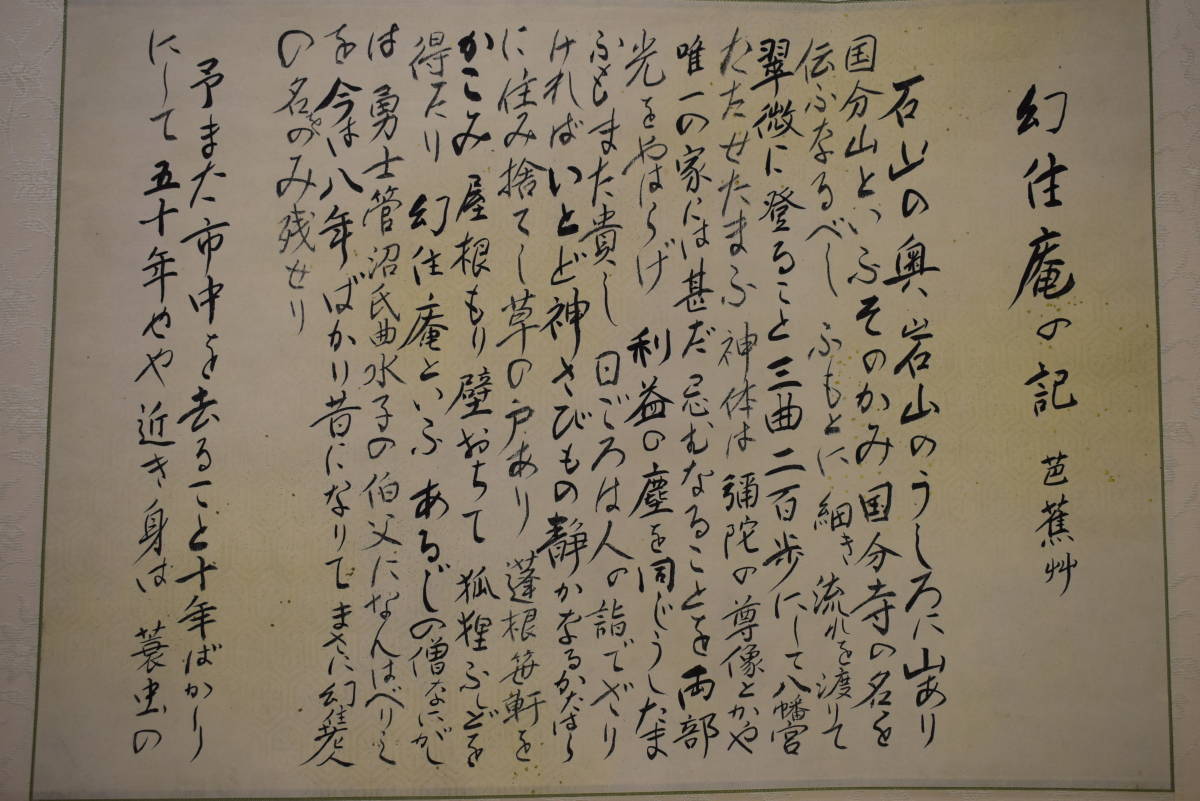 幻住庵の記 芭蕉艸
石山の奥 岩山のうしろに山あり
国分山といふそのかみ国分寺の名を
伝ふなるべし ふもとに細き流れを渡りて
翠微に登ること三曲二百歩にして八幡宮
たたせたまふ 神体は彌陀の尊像とかや
唯一の家には甚だ忌むなることを両部
光をやはらげ 利益の塵を同じうしたま
ふもまた貴し 日ごろは人の詣でざり
ければいとど神さびもの静かなるかたはら
に住み捨てし草の戸あり 蓬根笹軒を
かこみ 屋根もり壁おちて 狐狸ふしどを
得たり 幻住庵といふ あるじの僧なにがし
は 勇士管沼氏曲水子の伯父になんはべりし
を 今は八年ばかり昔になりて まさに幻住老人
の名のみ残せり
予また市中を去ること十年ばかり
にして 五十年やや近き身は 蓑虫の